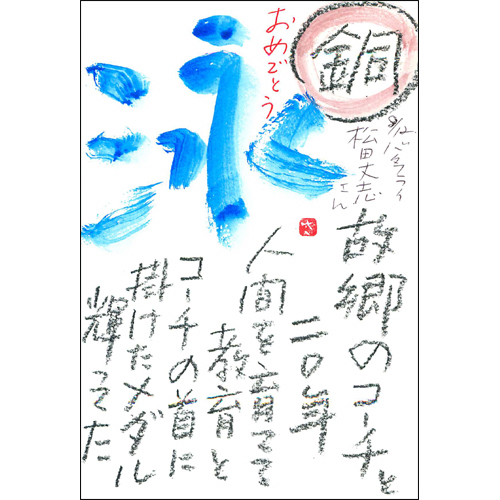 銅
バタフライ
松田丈志さん
おめでとう
泳
故郷のコーチと
二〇年
人間を育てて
教育と
コーチの首に
掛けたメダル